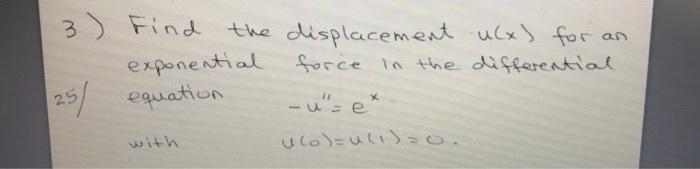 3) Find the displacement u(x) for an
exponential force in the differential
25/ equation -u'' = eˣ
with u(0)=u(1)=0.